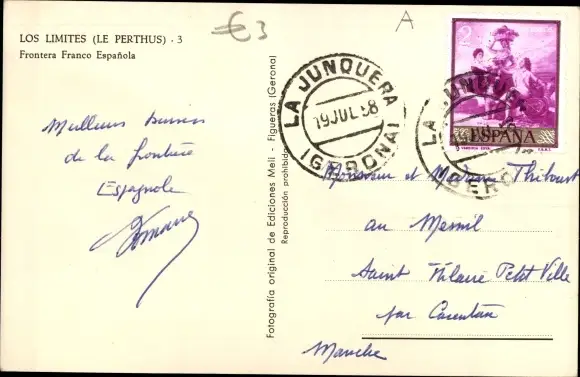 LOS LIMITES (LE PERTHUS) - 3
Frontera Franco Española
€3
A
Meilleurs
de la frontière
Espagnole
Fotografía original de Ediciones Meli - Figueras (Gerona)
Reproducción prohibida
LA JUNQUERA
19 JUL 68
(GERONA)
2
ESPAÑA
LA JUNQUERA
Monsieur et Madame Thibout
au Mesnil
Saint Hilaire Petit Ville
par Carentan
Manche